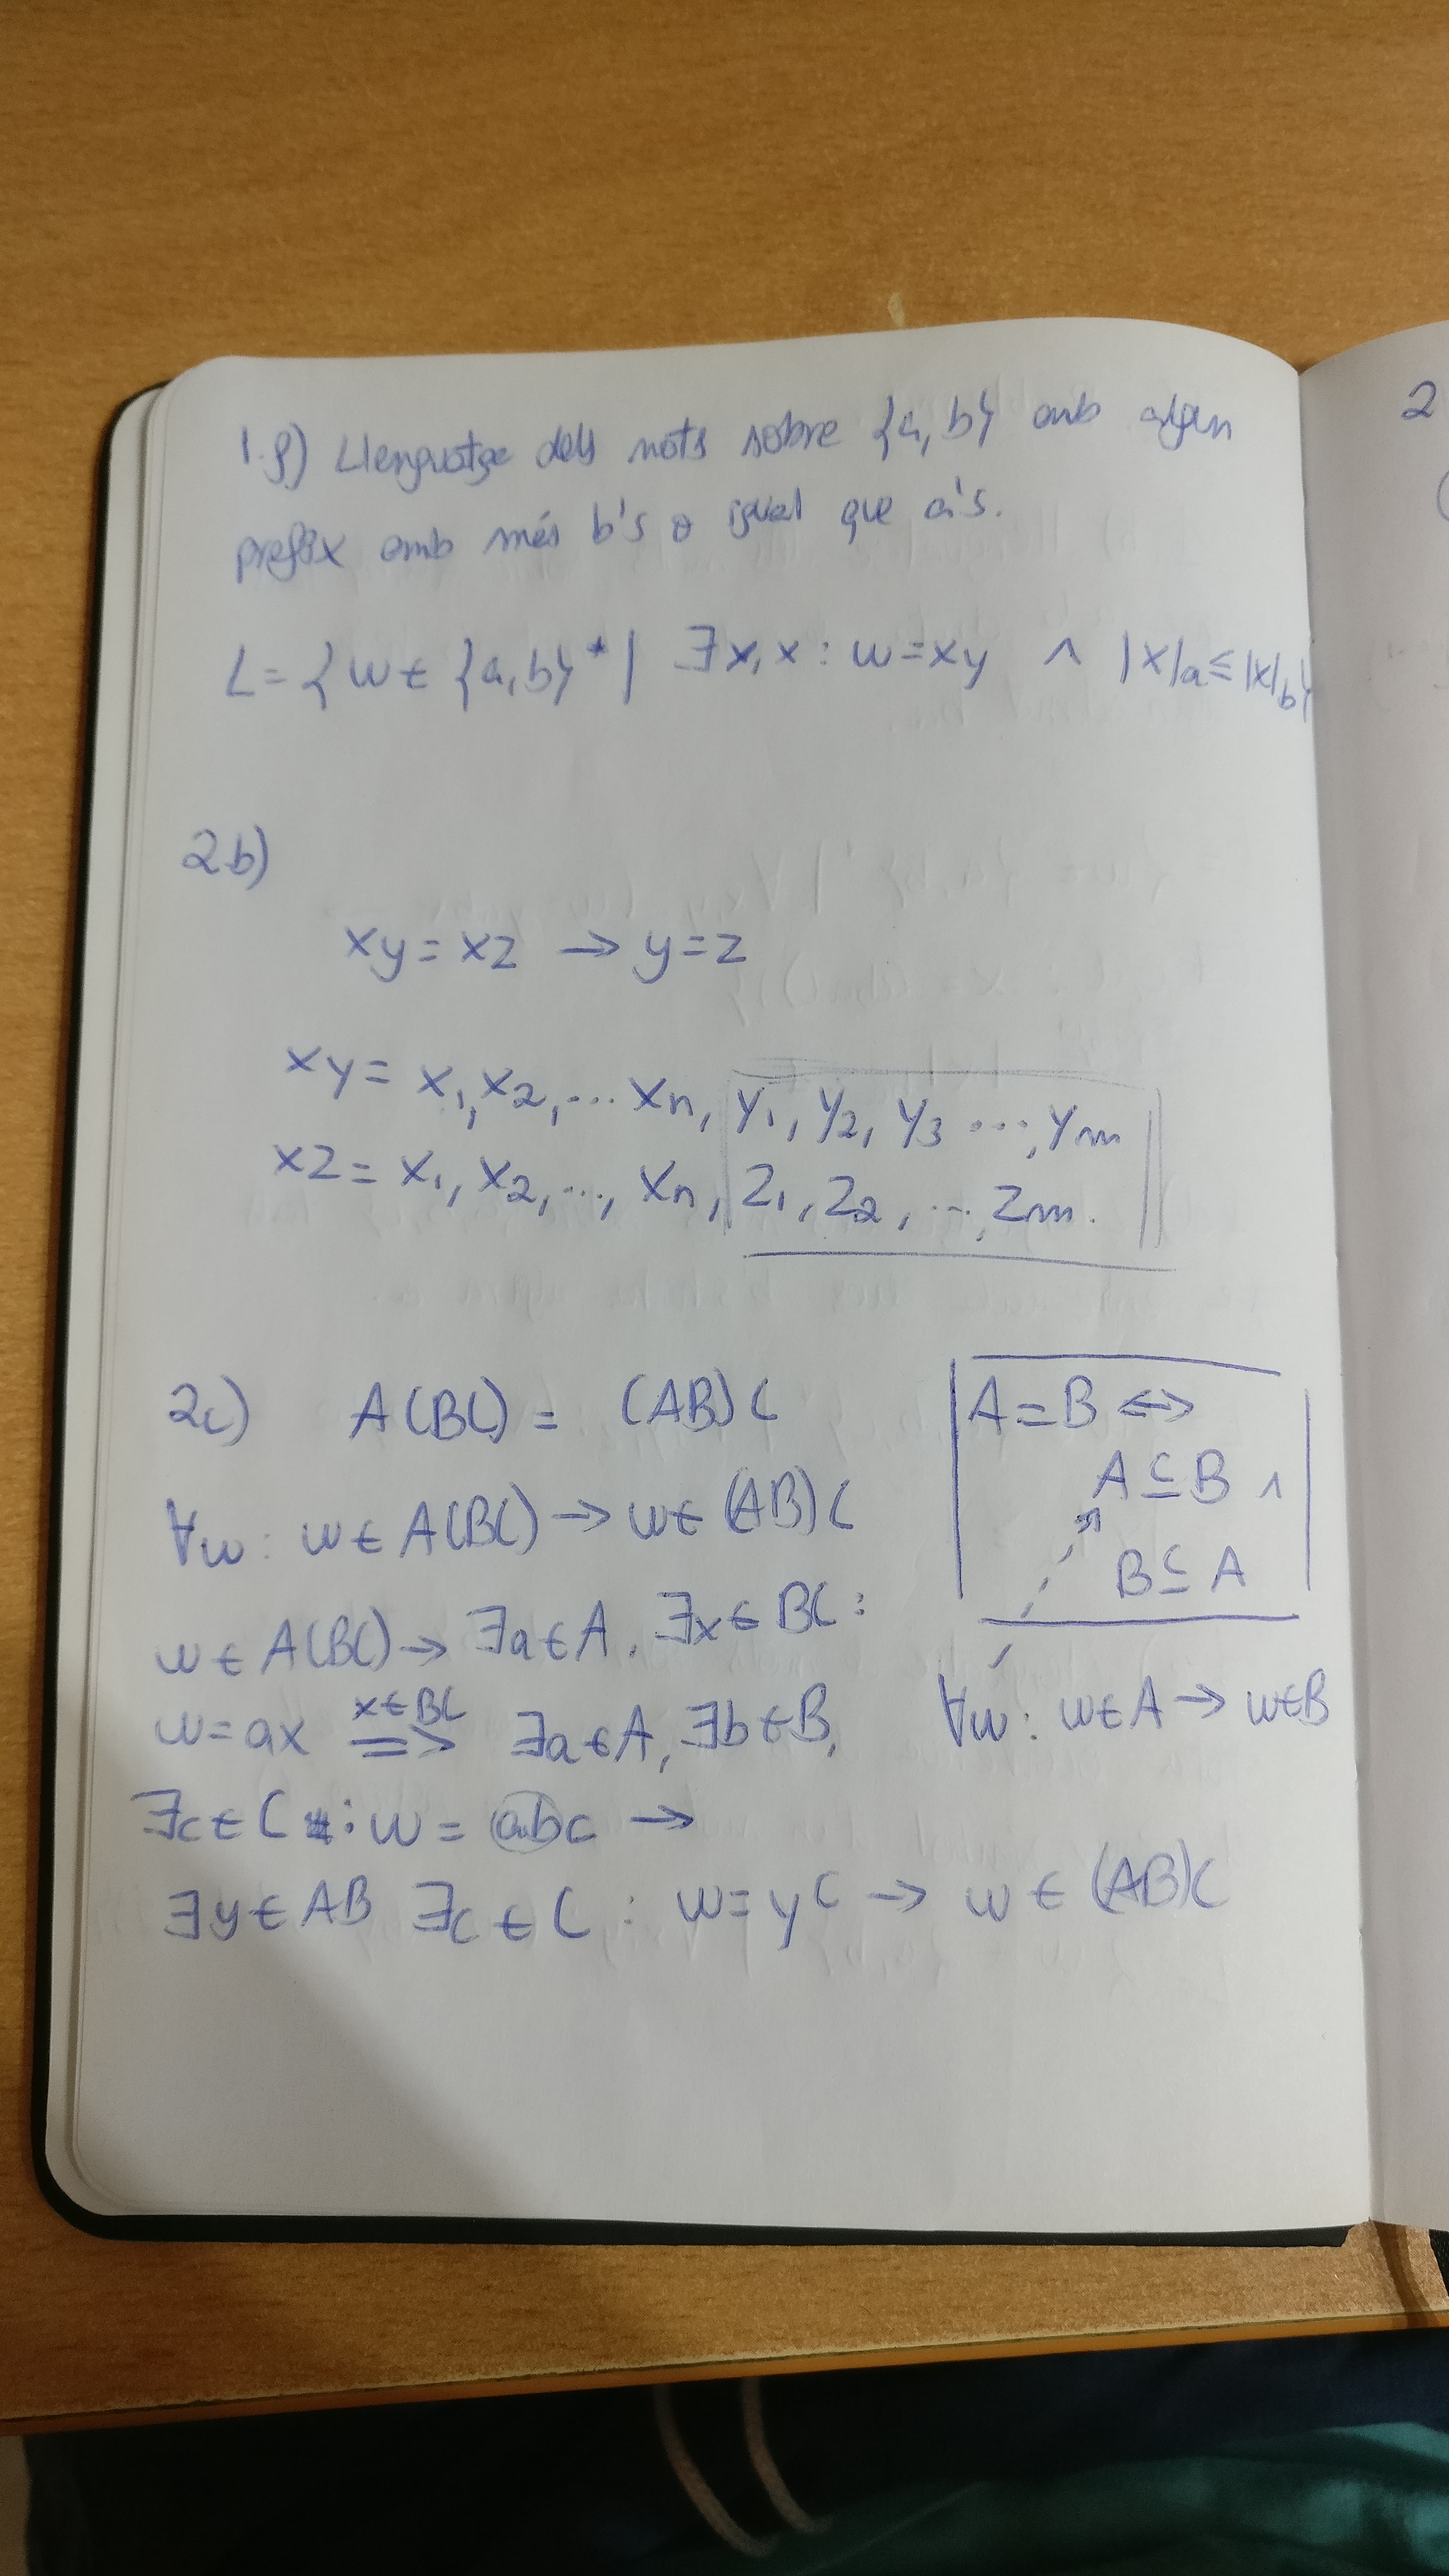 1.g) Llenguatge dels mots sobre {a, b} amb algun
prefix amb més b's o igual que a's.
L = { w ∈ {a, b}* | ∃x, x : w = xy ∧ |x|a ≤ |x|b}
2b)
xy = xz → y = z
xy = x₁, x₂, ... xn, y₁, y₂, y₃ ..., ym
xz = x₁, x₂, ..., xn, z₁, z₂, ..., zm.
2c) A(BC) = (AB)C
∀w : w ∈ A(BC) → w ∈ (AB)C
w ∈ A(BC) → ∃a ∈ A, ∃x ∈ BC :
w = ax x∈BC ⟹ ∃a ∈ A, ∃b ∈ B,
∃c ∈ C : w = abc →
∃y ∈ AB ∃c ∈ C : w = yc → w ∈ (AB)C
A = B ↔
A ⊆ B ∧
B ⊆ A
∀w : w ∈ A → w ∈ B
2
(